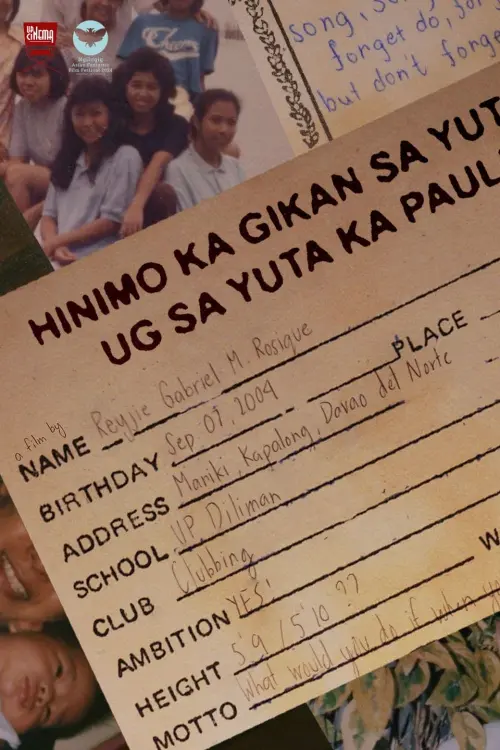 UP
CINEMA
song, so
forget do, for
but don't forge
Cheers
HINIMO KA GIKAN SA YUT
UG SA YUTA KA PAUL
a film by
NAME Reyjie Gabriel M. Rosique
BIRTHDAY Sep. 07, 2004 PLACE
ADDRESS Maniki, Kapalong, Davao del Norte
SCHOOL UP Diliman
CLUB Clubbing
AMBITION YES!
HEIGHT 5'9 / 5'10 ?? W
MOTTO What would you do if when y